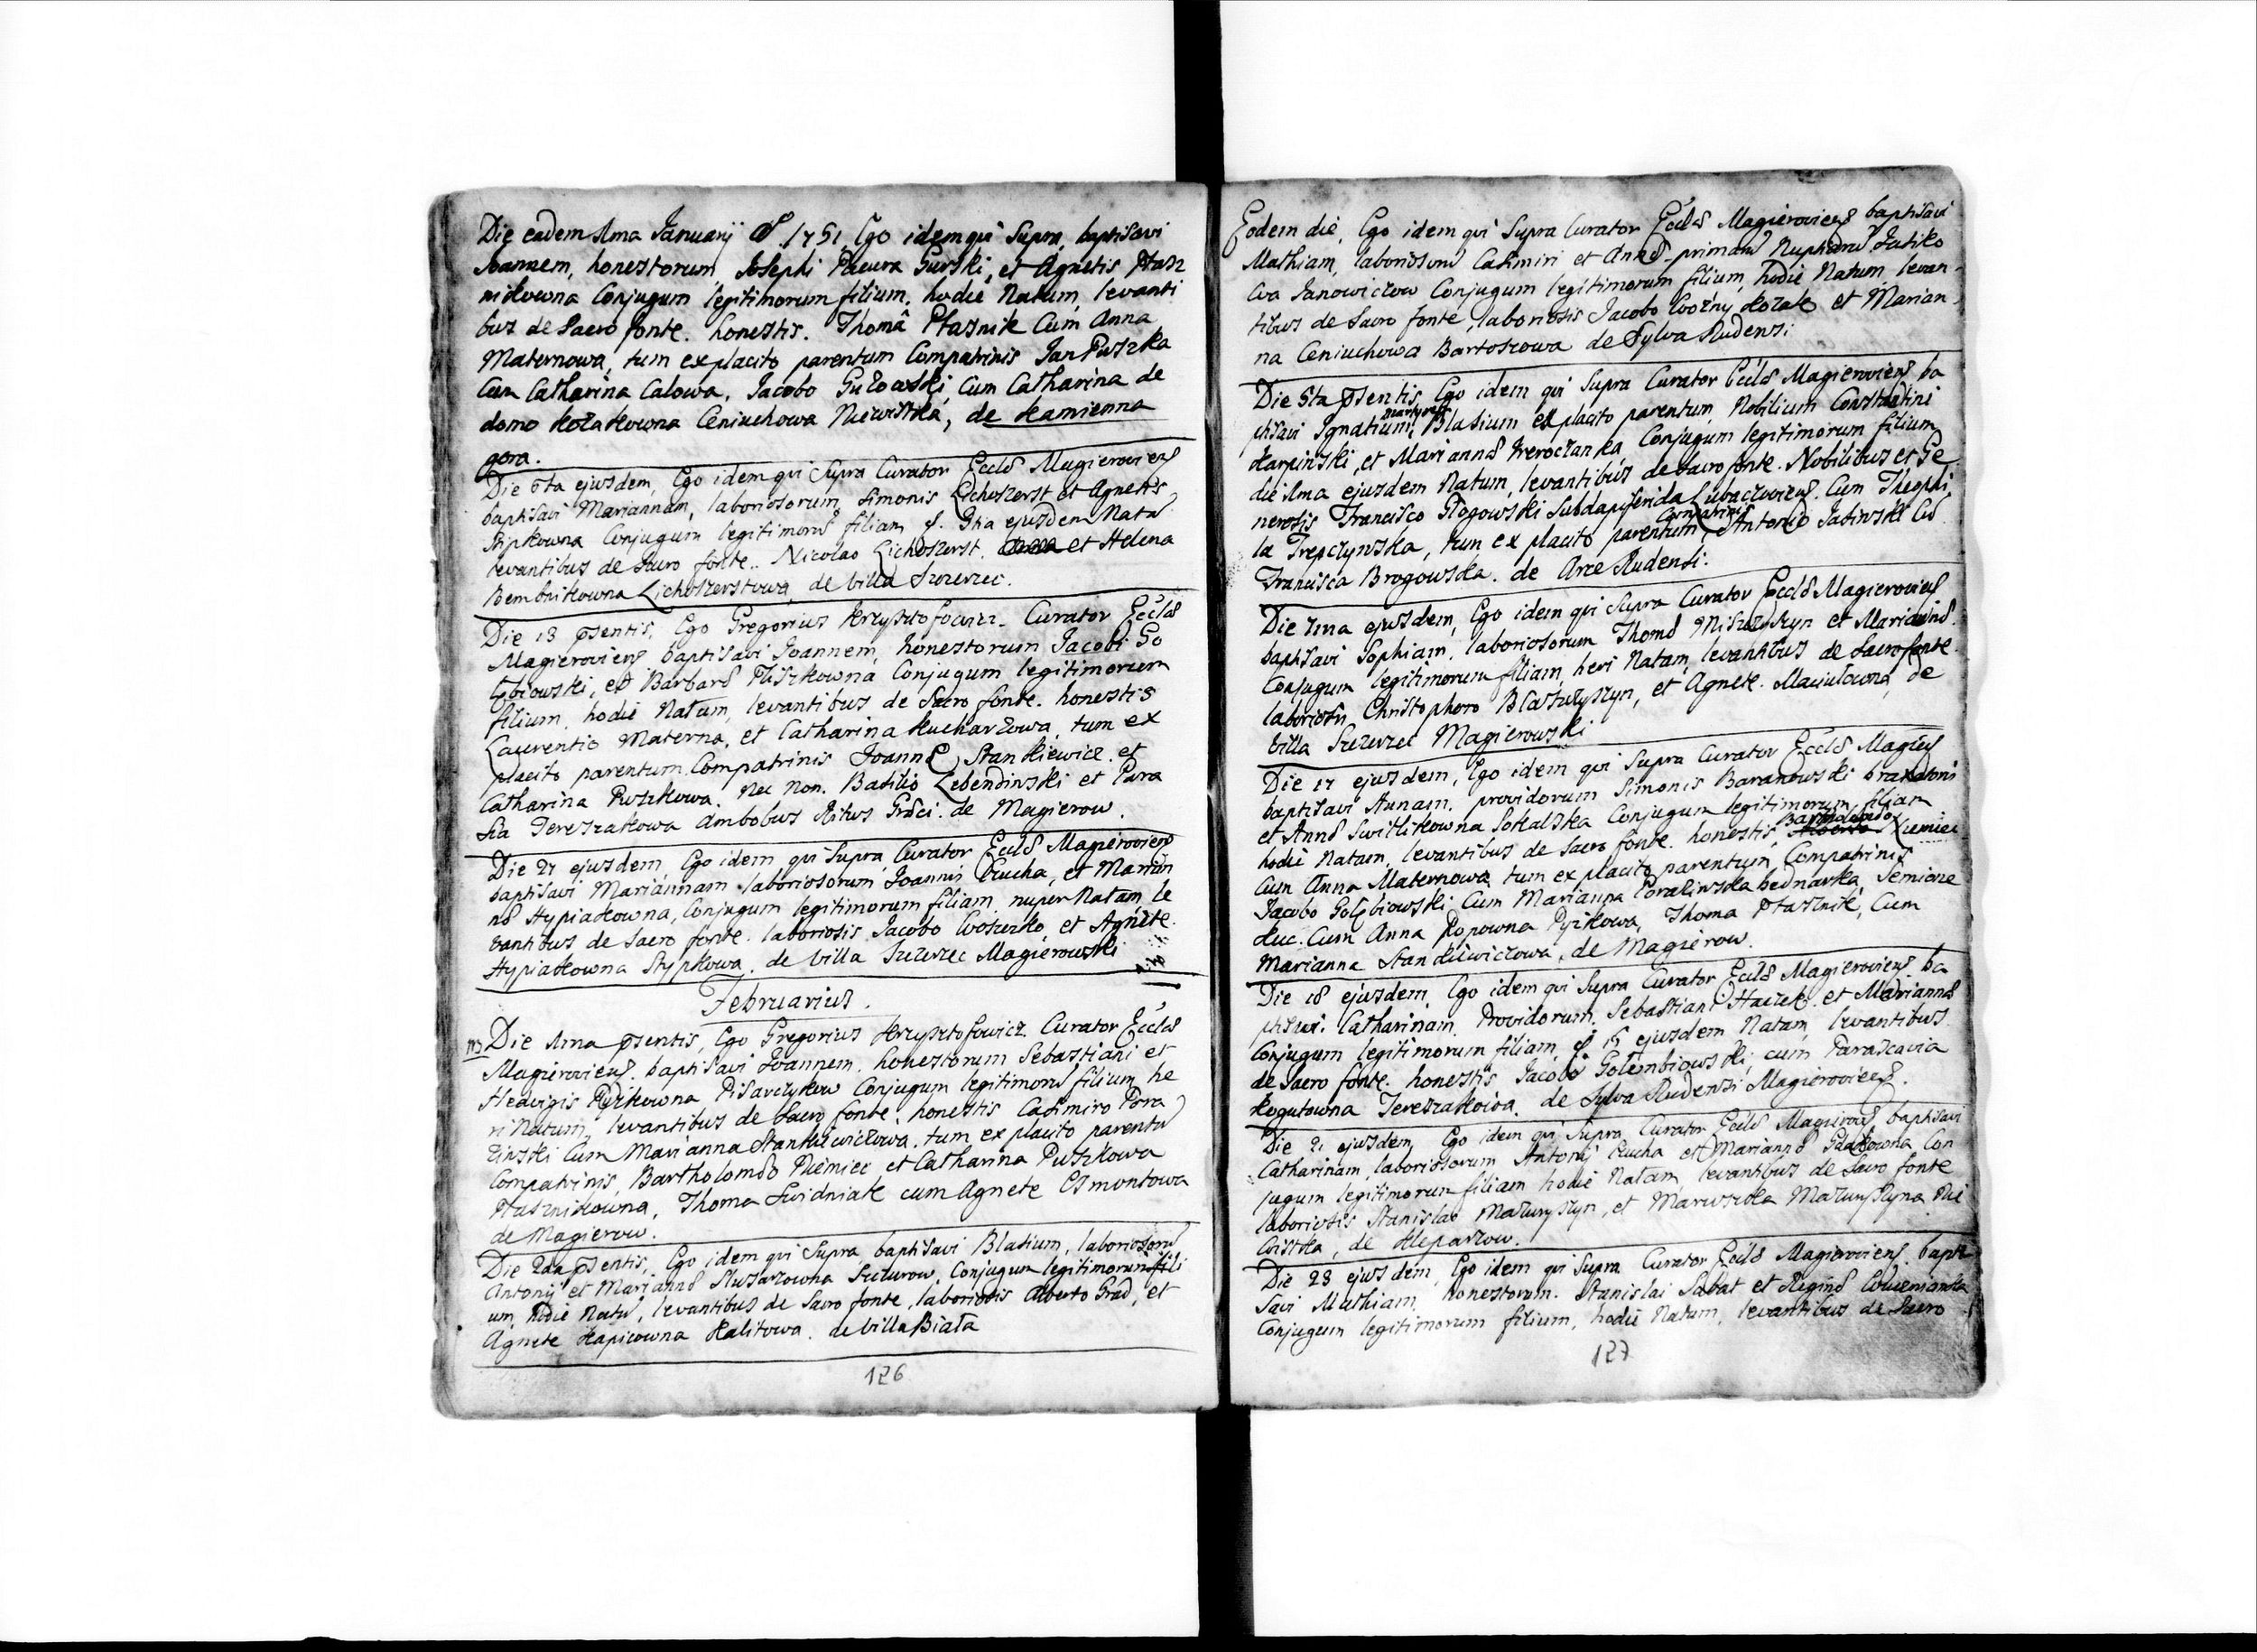 Die eadem 1ma Januarij A. 1751, Ego idem qui Supra, baptisavi
Joannem, honestorum, Josephi Pacura Gurski, et Agnetis Ptasz
nikowna Conjugum legitimorum filium, hodie Natum, levanti
bus de Sacro fonte. honestis. Thomâ Ptasnik Cum Anna
Maternowa, tum explacito parentum Compatrinis Jan Puszka
Cum Catharina Calowa, Jacobo Cum Catharina de
domo Kozakowna Ceniuchowa Niewistka, de Kamienna
gora.
Die 6ta ejusdem, Ego idem qui Supra Curator Eccls Magieroviens
baptisavi Mariannam, laboriosorum, Simonis Lichoszerst et Agnetis
Stipkowna Conjugum legitimoru filiam d. ejusdem Nata
levantibus de Sacro fonte.. Nicolao Lichoszerst, et Helena
Bembnikowna Lichoszerstowa, de villa Szczerzec.
Die 13 psentis, Ego Gregorius Krzysztofowicz. Curator Eccls
Magieroviens baptisavi Joannem, honestorum Jacobi Go
lębiowski, et Barbara Puszkowna Conjugum legitimorum
filium, hodie Natum, levantibus de Sacro fonte. honestis
Laurentio Materna, et Catharina Kucharzowa, tum ex
placito parentum. Compatrinis Joanne Stankiewicz, et
Catharina Puszkowa. Nec Non. Basilio Lebendinski et Para
sia Tereszakowa Ambobus Ritus Græci. de Magierow.
Die 21 ejusdem, Ego idem, qui Supra, Curator Eccls Magieroviens
baptisavi Mariannam laboriosorum Joannis Crucha, et Marian
næ Hypiakowna, Conjugum legitimorum filiam, nuper Natam, le
vantibus de Sacro fonte. laboriosis Jacobo Woszczko, et Agnete.
Hypiakowna Stypkowa. de villa Szczerzec Magierowski
Februarius.
Die 1ma psentis, Ego Gregorius Krzysztofowicz Curator Eccls
Magieroviens. baptisavi Joannem. honestorum Sebastiani et
Hedvigis Pyzikowna Pisarczykow Conjugum legitimoru filium, he
ri Natum, levantibus de Sacro fonte, honestis Casimiro Pora
zinski Cum Marianna Stankiewiczowa. tum ex placito parentu
Compatrinis, Bartholomæo Niemiec et Catharina Puszkowa
Ptasznikowna, Thoma Swidniak cum Agnete Osmontowa
de Magierow.
Die 2da psentis, Ego idem qui Supra baptisavi Blasium, laboriosoru
Antonij et Mariannæ Slusarzowna Sczurow, Conjugum legitimorum fili
um, hodie Natu, levantibus de Sacro fonte, laboriosis Alberto Grad, et
Agnete Kapicowna Kalitowa. de villa Biała
126
Eodem die, Ego idem qui Supra Curator Eccls Magieroviens baptisavi
Mathiam, laboriosoru Casimiri et Annæ primaru Nuptiaru Jatiko
wa Janowiczow Conjugum legitimorum filium, hodie Natum, levan-
tibus de Sacro fonte, laboriosis Jacobo Woźny Kozak et Marian
na Ceniuchowa Bartoszowa de Sylva Rudensi
Die 5ta psentis, Ego idem qui Supra Curator Eccls Magieroviens ba
ptisavi Ignatium martyrem, Blasium ex placito parentum, Nobilium Constantini
Karpinski, et Mariannæ Conjugum legitimorum filium
die 1ma ejusdem Natum, levantibus de Sacro fonte. Nobilibus et Ge
nerosis Francisco Glogowski Subdapiferida Lubaczoviens. Cum Theophi
la Trepczynska, tum ex placito parentum, Compatrinis Antonio Jasinski Cu
Francisca Brogowska. de Arce Rudensi.
Die 7ma ejusdem, Ego idem qui Supra Curator Eccls Magieroviens
baptisavi Sophiam, laboriosorum Thomæ et Mariannæ.
Conjugum legitimorum filiam, heri Natam, levantibus de Sacro fonte
laboriosis Christophoro Błaszczyszyn, et Agnete. de
villa Szczerzec Magierowski
Die 17 ejusdem, Ego idem qui Supra Curator Eccls Magiens
baptisavi Annam. providorum Simonis Baranowski braxatoris
et Annæ Switlikowna Sokalska Conjugum legitimorum filiam
hodie Natam, levantibus de Sacro fonte. honestis, Bartholomæo Niemiec
Cum Anna Maternowa, tum ex placito parentum, Compatrinis
Jacobo Golębiowski Cum Marianna Poralinska bednarka, Semione
Kuc. Cum Anna Popowna Pyzikowa, Thoma Ptasznik, Cum
Marianna Stankiewiczowa, de Magierow.
Die 18 ejusdem, Ego idem qui Supra Curator Eccls Magieroviens. ba
ptisavi Catharinam. Providorum. Sebastiani Haczek. et Mariannæ
Conjugum legitimorum filiam, d. 15 ejusdem Natam, levantibus
de Sacro fonte. honestis Jacobo Golembiowski, cum Parascavia
Kogutowna Tereszakowa. de Sylva Rudensi Magieroviens.
Die 21 ejusdem, Ego idem qui Supra Curator Eccls Magierovs baptisavi
Catharinam, laboriosorum Antonij Crucha et Mariannæ Con
jugum legitimorum filiam hodie Natam, levantibus de Sacro fonte
laboriosis Stanislao Mazuryszyn, et Maruszka Mazuryszyna Nie
wistka, de Kleparzow.
Die 23 ejusdem, Ego idem qui Supra Curator Eccls Magieroviens. bapti
savi Mathiam, honestorum. Stanislai Sabat et Reginæ
Conjugum legitimorum filium, hodie Natum, levantibus de Sacro
127